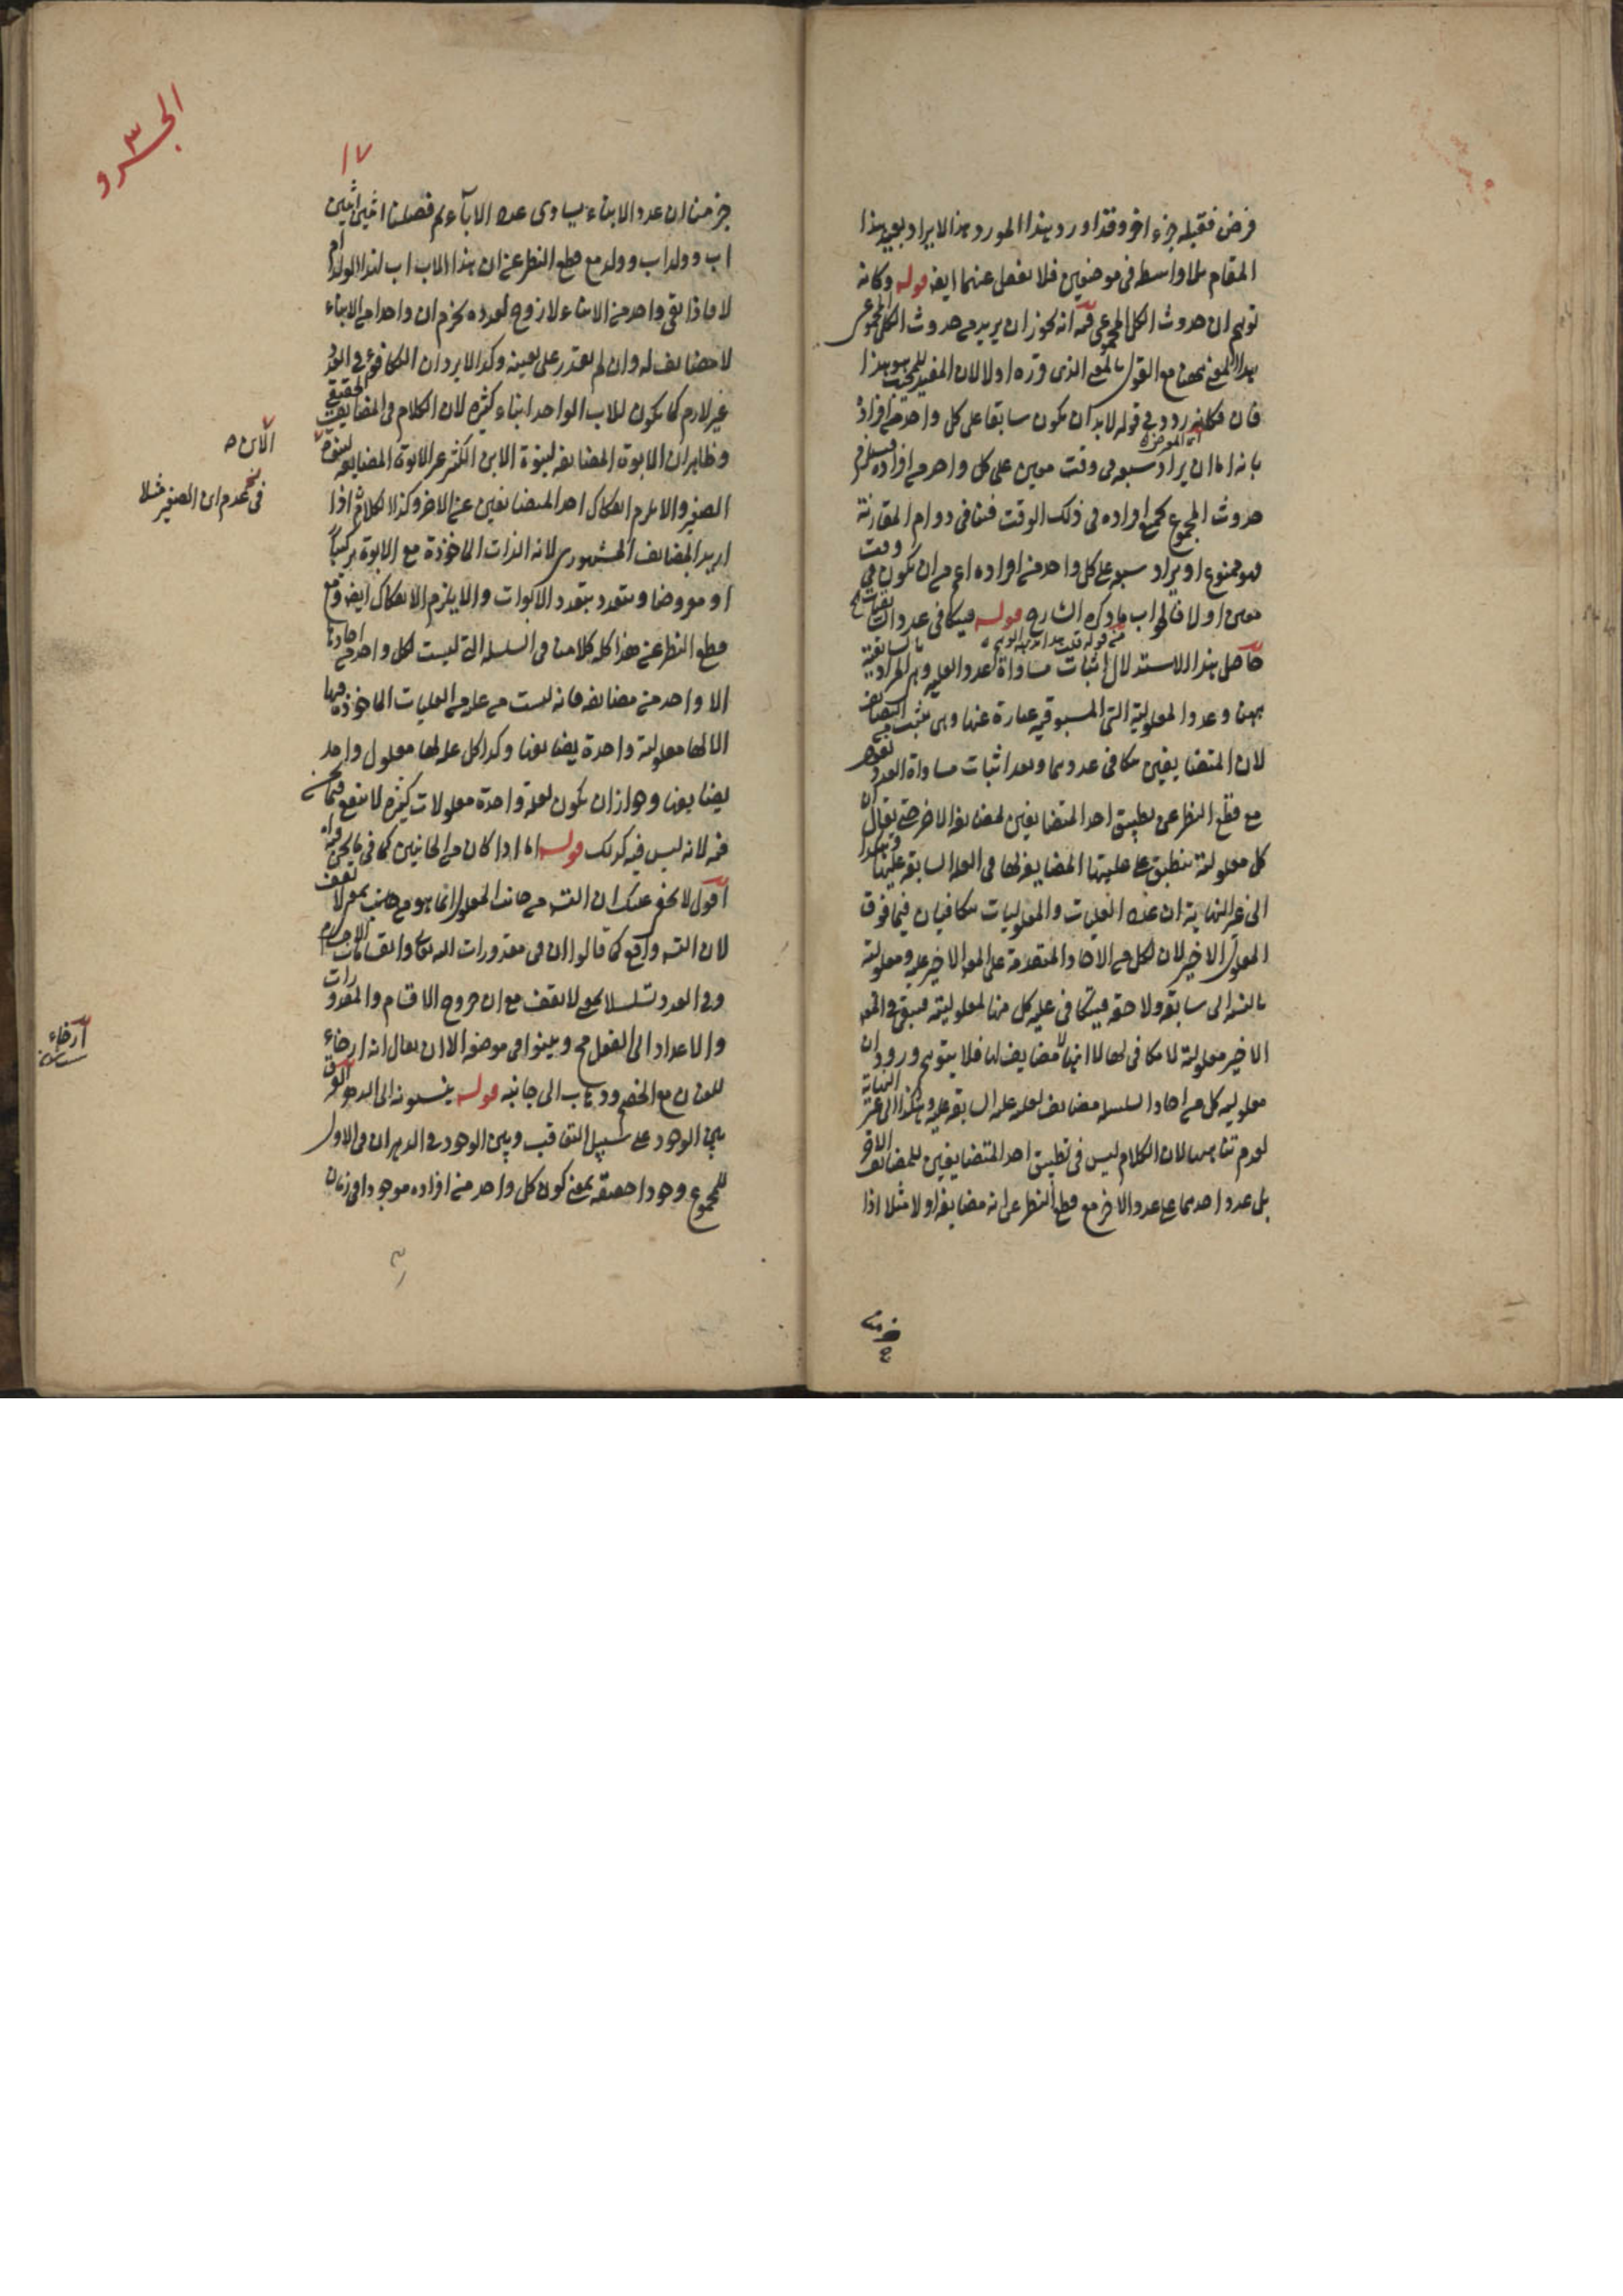 فرض فقبله جزء اخر وقد اورد هذا المورد هذا الايراد بعيد هذا
المقام بلا واسطه فى موضعين فلا تغفل عنهما ايضا قوله وكانه
توهم ان حدوث الكل المجموعى فيه انه يجوز ان يريد من حدوث الكل المجموعى
هذا المعنى مع القول بالمعنى الذى قرره اولا لان المفيد للبحث هو هذا
فان قوله لابد ان يكون سابقا على كل واحد من افراده
بانه اما ان يراد سبقه فى وقت معين على كل واحد من افراده فيستلزم
حدوث المجموع بجميع افراده فى ذلك الوقت فينافى دوام المقارنة
فهو ممنوع او يراد سبقه على كل واحد من افراده اعم من ان يكون فى وقت
معين اولا فالجواب ما ذكره الشارح قوله فيتكافى عدد السابقيات الخ
حاصل هذا الاستدلال اثبات مساواة عدد العلية
وعدد المعلولية التى المسبوقية عبارة عنها
لان المتضايفين يتكافى عددهما وبعد اثبات مساواة العدد
مع قطع النظر عن تطبيق احد المتضايفين لمضايفه الاخر حتى يقال ان
كل معلولية تنطبق على عليتها المضايفة لها فى العلة السابقة عليها وهكذا
الى غير النهاية ان عدد العليات والمعلوليات يتكافيان فيما فوق
المعلول الاخير لان لكل من الاحاد المتقدمة على المعلول الاخير علية ومعلولية
بالنسبة الى سابقه ولاحقه فيتكافى علية كل منها لمعلوليته فيبقى فى المعلول
الاخير معلولية لا مكافى لها لا انها لا مضايف لها فلا يتوهم ورود ان
معلولية كل من احاد السلسلة مضايف لعلية علته السابقة عليه وهكذا الى غير النهاية
لعدم تناهيها لان الكلام ليس فى تطبيق احد المتضايفين للمضايف الاخر
بل عدد احدهما على عدد الاخر مع قطع النظر عن انه مضايفه اولا مثلا اذا
الجزو ٣
١٧
جزمنا ان عدد الابناء يساوى عدد الاباء ثم فصلنا اثنين اثنين
اب وولد اب وولد مع قطع النظر عن ان هذا الاب اب لهذا الولد ام
لا فاذا بقى واحد من الابناء لا زوج لعدده نجزم ان واحدا من الابناء
لا مضايف له وان لم نقدر على تعيينه وكذا لا يرد ان التكافؤ فى العدد
غير لازم كما يكون للاب الواحد ابناء كثيرة لان الكلام فى المضايف الحقيقى
وظاهر ان الابوة المضايفة لبنوة الابن الكبير غير الابوة المضايفة لبنوة
الصغير والا لزم انفكاك احد المتضايفين عن الاخر وكذا الكلام اذا
اريد المضايف المشهورى لانه الذات الماخوذة مع الابوة تركيبا
او معروضا وتتعدد بتعدد الابوات والا يلزم الانفكاك ايضا ومع
قطع النظر عن هذا كله كلامنا فى السلسلة التى ليست لكل واحد من احادها
الا واحد من مضايفه فانه ليست من علة من العليات الماخوذة فيها
الا لها معلولية واحدة يضايفها وكذا كل علة لها معلول واحد
يضايفها وجواز ان يكون لعلة واحدة معلولات كثيرة لا ينفع فيما نحن
فيه لانه ليس فيه كذلك قوله اما اذا كان من الجانبين كما فى ما نحن فيه
اقول لا يخفى عليك ان التسلسل من جانب المعلول انما هو من جانب بمعنى لا تقف
لان التسلسل واقع كما قالوا ان فى مقدورات الله تعالى وانقسامات الاجسام
وفى العدد تسلسلا بمعنى لا تقف مع ان خروج الاقسام والمقدورات
والاعداد الى الفعل مح وبينوا فى موضعه الا ان يقال انه ارخاء
للعنان مع الخصم وذهاب الى جانبه قوله ينسبونه الى الدهر الفرق
بين الوجود على سبيل التعاقب وبين الوجود فى الدهر ان فى الاول
للمجموع وجودا حقيقة بمعنى كون كل واحد من افراده موجودا فى زمان
الابن ص
فى عدم ابن الصغير مثلا
ارخاء